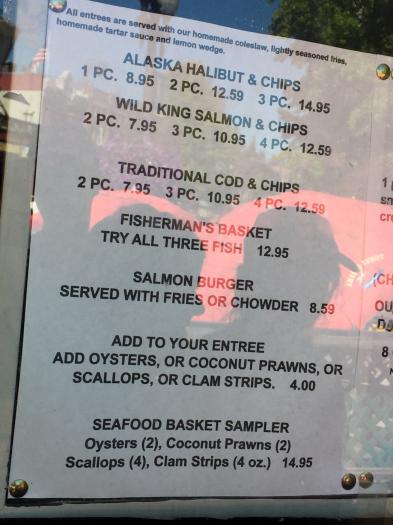 All entrees are served with our homemade coleslaw, lightly seasoned fries,
homemade tartar sauce and lemon wedge.
ALASKA HALIBUT & CHIPS
1 PC. 8.95 2 PC. 12.59 3 PC. 14.95
WILD KING SALMON & CHIPS
2 PC. 7.95 3 PC. 10.95 4 PC. 12.59
TRADITIONAL COD & CHIPS
2 PC. 7.95 3 PC. 10.95 4 PC. 12.59
FISHERMAN'S BASKET
TRY ALL THREE FISH 12.95
SALMON BURGER
SERVED WITH FRIES OR CHOWDER 8.59
ADD TO YOUR ENTREE
ADD OYSTERS, OR COCONUT PRAWNS, OR
SCALLOPS, OR CLAM STRIPS. 4.00
SEAFOOD BASKET SAMPLER
Oysters (2), Coconut Prawns (2)
Scallops (4), Clam Strips (4 oz.) 14.95